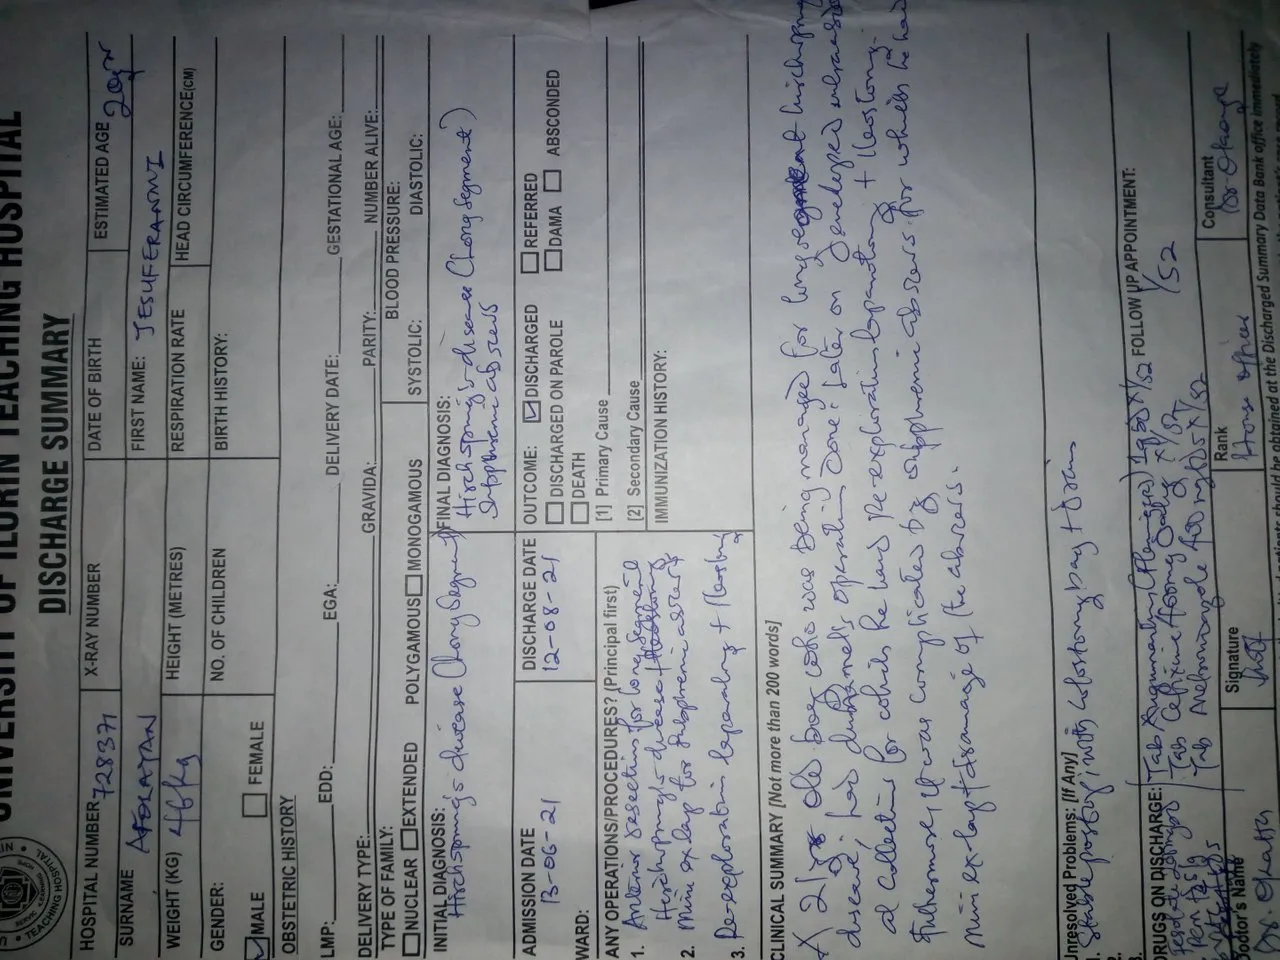 UNIVERSITY OF ILORIN TEACHING HOSPITAL
DISCHARGE SUMMARY
HOSPITAL NUMBER 728371 X-RAY NUMBER DATE OF BIRTH ESTIMATED AGE 20yr
SURNAME AFOLAYAN FIRST NAME: JESUFERANMI
WEIGHT (KG) 46kg HEIGHT (METRES) RESPIRATION RATE HEAD CIRCUMFERENCE(CM)
GENDER: NO. OF CHILDREN BIRTH HISTORY:
MALE FEMALE
OBSTETRIC HISTORY
LMP: EDD: EGA: DELIVERY DATE: GESTATIONAL AGE:
DELIVERY TYPE: GRAVIDA: PARITY: NUMBER ALIVE:
TYPE OF FAMILY: BLOOD PRESSURE:
NUCLEAR EXTENDED POLYGAMOUS MONOGAMOUS SYSTOLIC: DIASTOLIC:
INITIAL DIAGNOSIS: FINAL DIAGNOSIS:
Hirschsprung's disease (long segment) Hirschsprung's disease (long segment)
Subphrenic abscess
ADMISSION DATE DISCHARGE DATE OUTCOME: DISCHARGED REFERRED
13-06-21 12-08-21 DISCHARGED ON PAROLE DAMA ABSCONDED
DEATH
WARD: [1] Primary Cause
ANY OPERATIONS/PROCEDURES? (Principal first) [2] Secondary Cause
1. Anterior resection for long segment IMMUNIZATION HISTORY:
Hirschsprung's disease +
2. Mini ex lap for subphrenic abscess
3. Re-exploration laparotomy +
CLINICAL SUMMARY [Not more than 200 words]
A 21yr old boy who was being managed for long segment hirschsprung
disease; had duhamel's operation done. Later on developed
collection for which he had Re-exploration laparotomy +
Furthermore, it was complicated by subphrenic abscess for which he had
mini ex-lap + drainage of the abscess.
Unresolved Problems: [If Any]
1. Stable postop with colostomy bag + drain
2.
3.
DRUGS ON DISCHARGE: Tab Augmentin 1g FOLLOW UP APPOINTMENT:
Tab Cefixime 400mg daily 1/52
Tab Metronidazole 400mg
Doctor's Name Signature Rank Consultant
Dr. House officer Dr